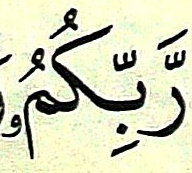 رَّبِّكُمُ و